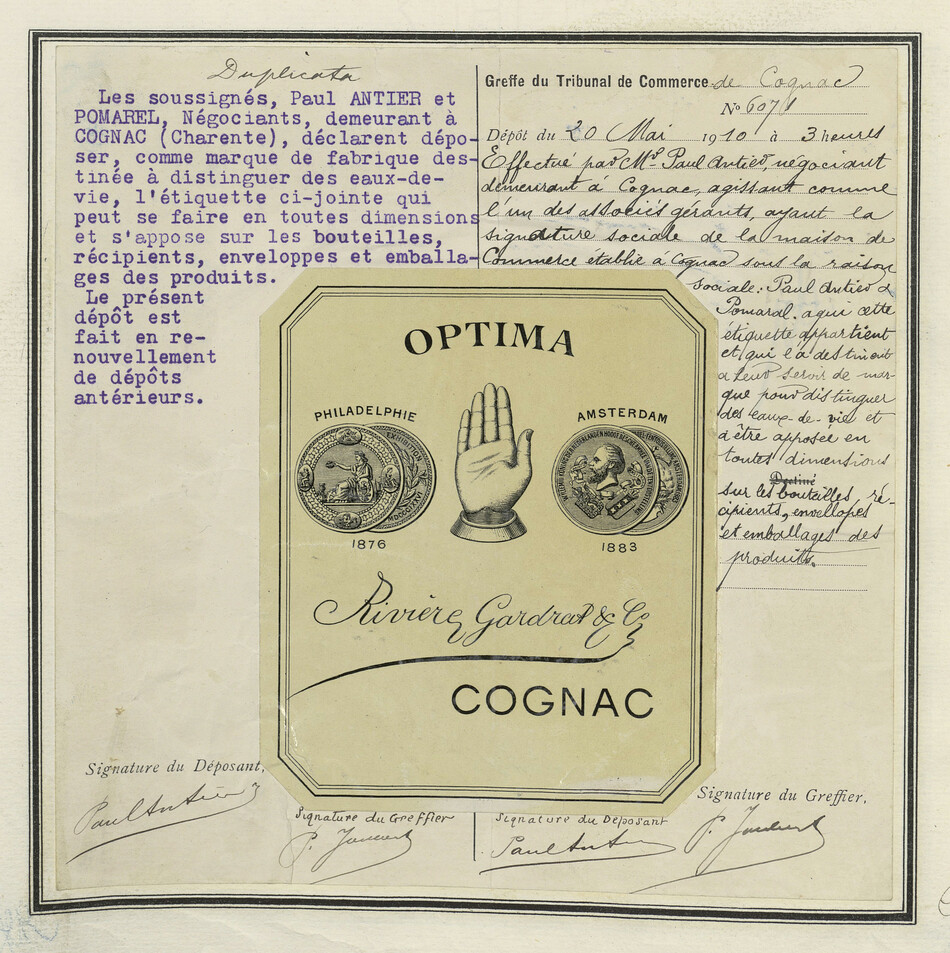 Duplicata
Les soussignés, Paul ANTIER et
POMAREL, Négociants, demeurant à
COGNAC (Charente), déclarent dépo-
ser, comme marque de fabrique des-
tinée à distinguer des eaux-de-
vie, l'étiquette ci-jointe qui
peut se faire en toutes dimensions
et s'appose sur les bouteilles,
récipients, enveloppes et emballa-
ges des produits.
Le présent
dépôt est
fait en re-
nouvellement
de dépôts
antérieurs.
Greffe du Tribunal de Commerce de Cognac
Nº 6071
Dépôt du 20 Mai 1910 à 3 heures
Effectué par Mr. Paul Antier, négociant
demeurant à Cognac, agissant comme
l'un des associés gérants, ayant la
signature sociale de la maison de
Commerce établie à Cognac sous la raison
sociale: Paul Antier &
Pomarel. à qui cette
étiquette appartient
et qui l'a destinent
a leur servir de mar-
que pour distinguer
des eaux-de-vie et
d'être apposée en
toutes dimensions
Destiné
sur les bouteilles, ré-
cipients, enveloppes
et emballages des
produits.
OPTIMA
PHILADELPHIE
AMSTERDAM
1876
1883
Rivière Gardrat & Co
COGNAC
Signature du Déposant,
Paul Antier
Signature du Greffier
Signature du Déposant
Paul Antier
Signature du Greffier,